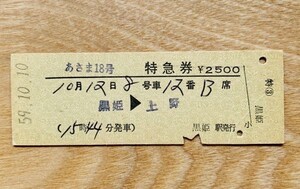 59.10.10
あさま18号 特急券 ¥2500
10月12日8号車12番B席
黒姫▶上野
(15時44分発車)
黒姫駅発行
小
特③
黒姫